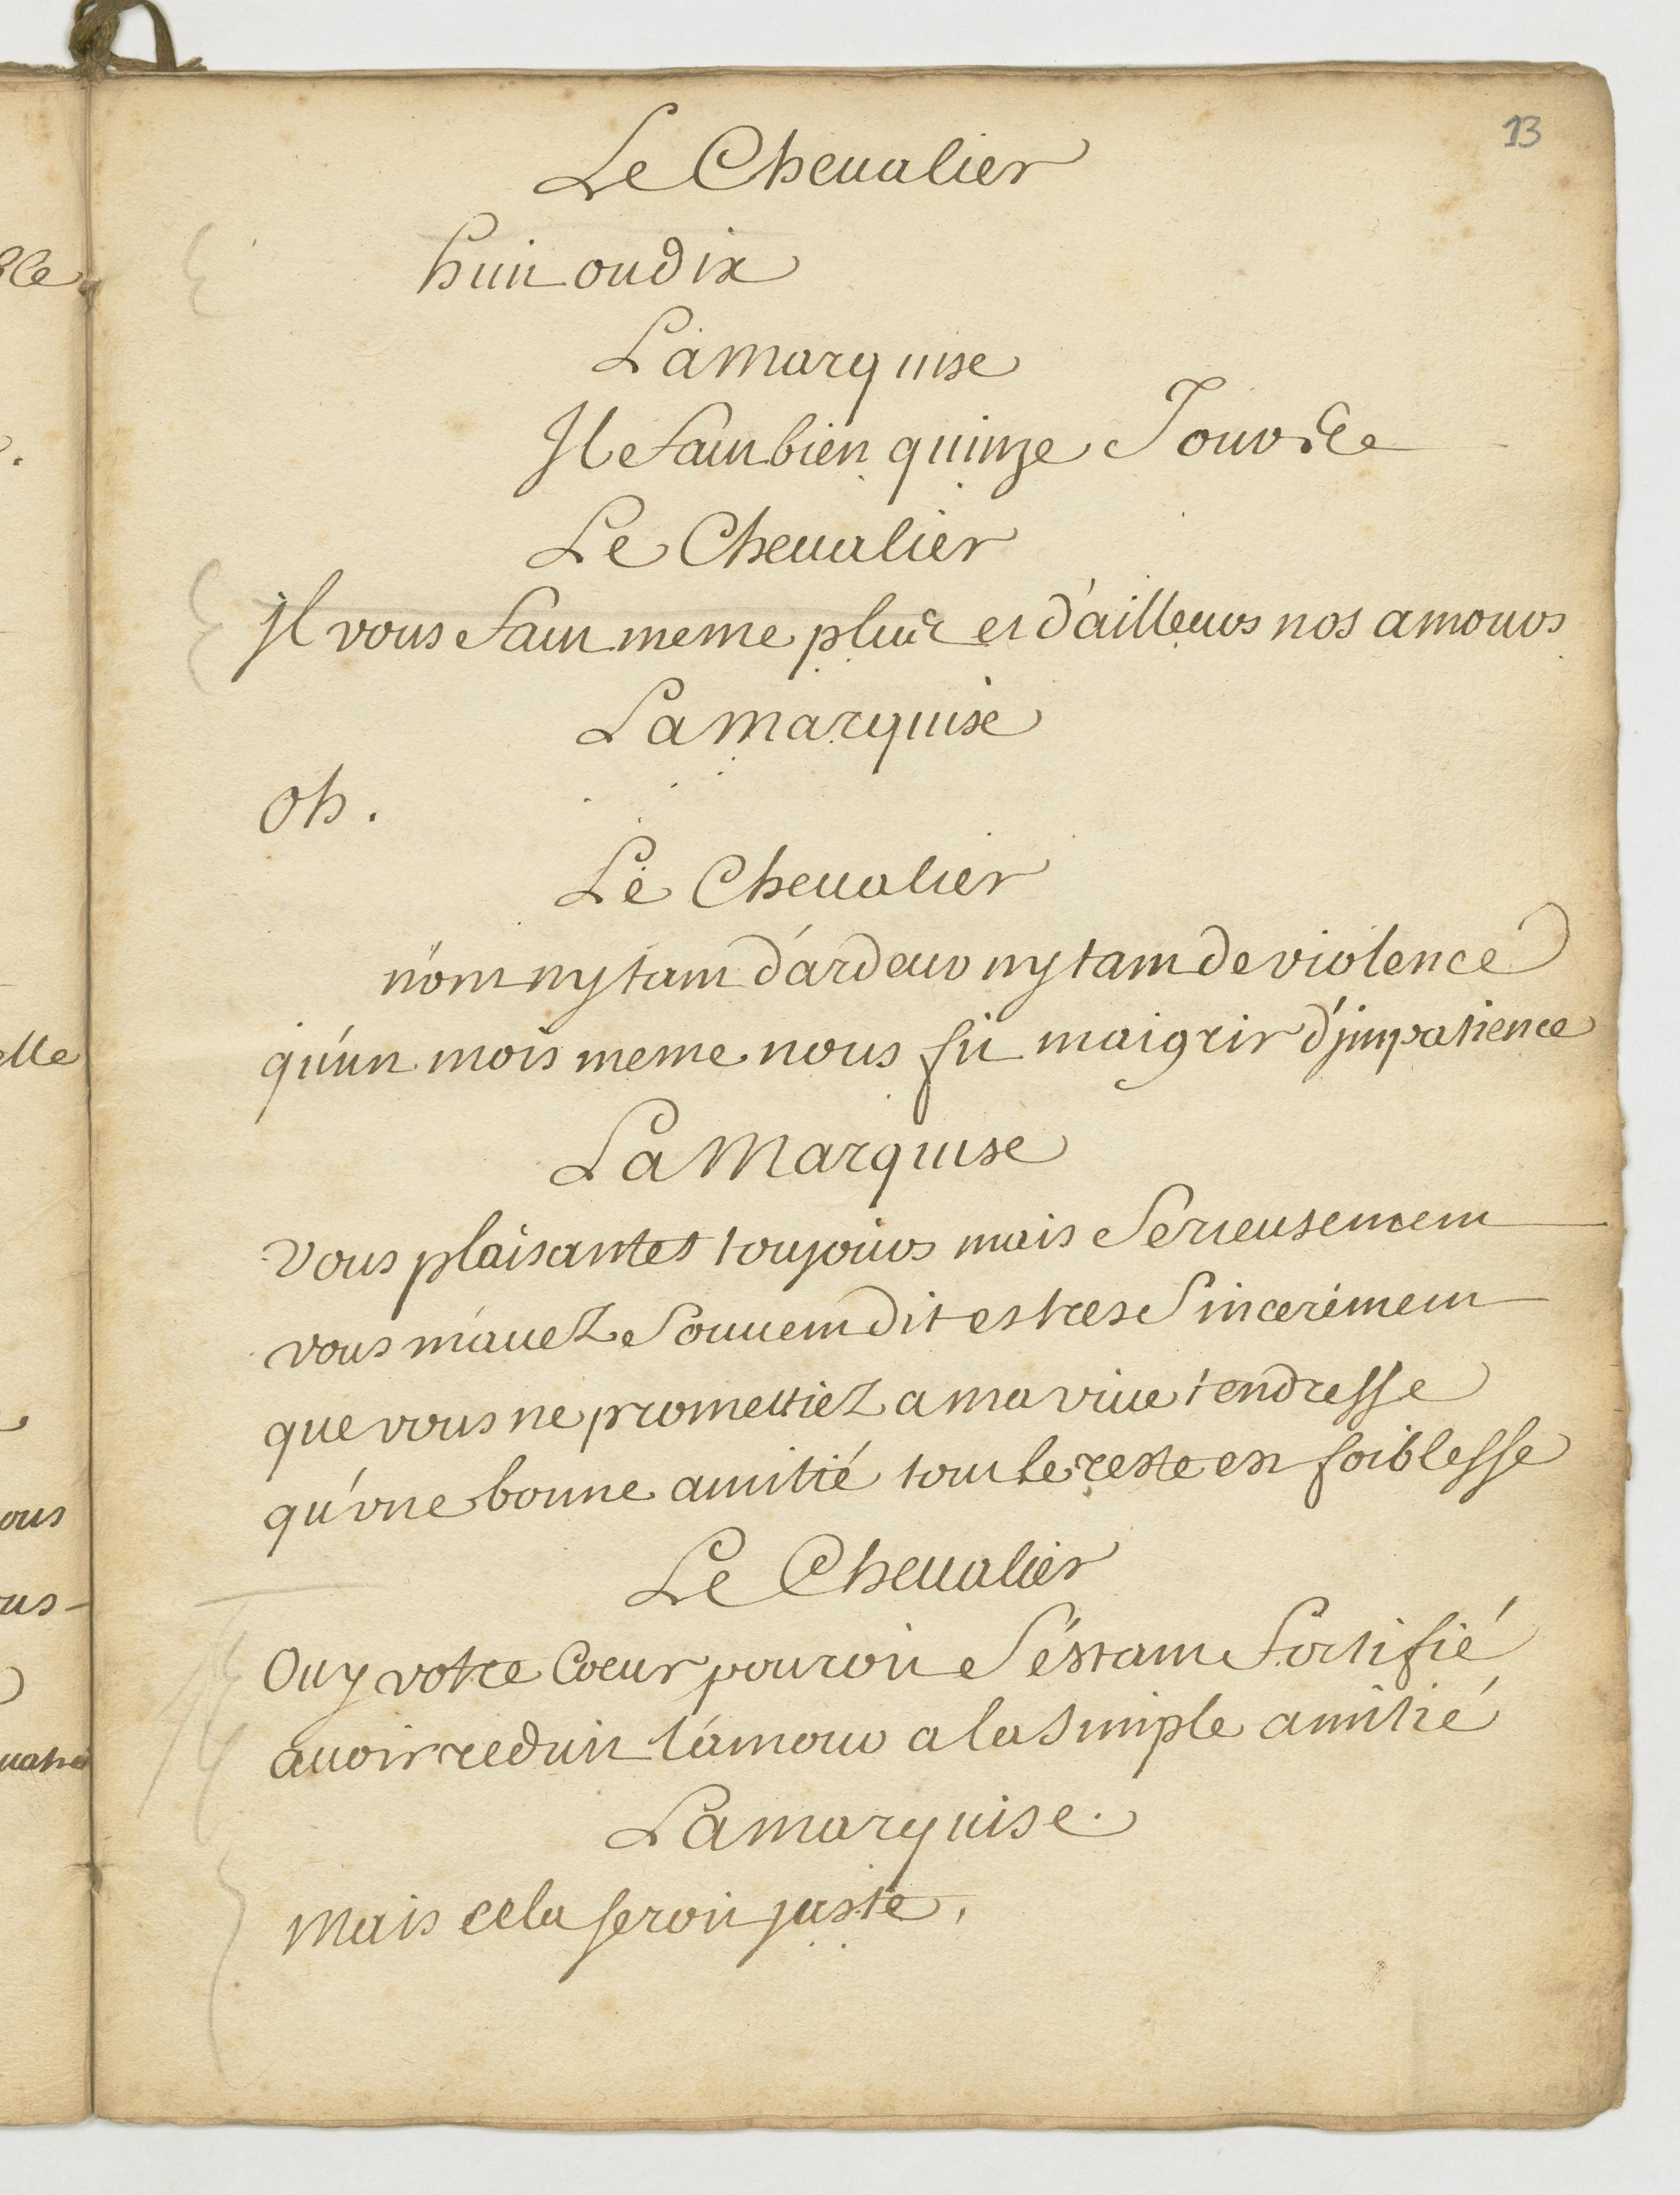 13
Le Cheualier
huit ou dix
La marquise
Il faut bien quinze Jours
Le Cheualier
jl vous faut meme plus et d'ailleurs nos amours
La marquise
oh.
Le Cheualier
n'ont ny tant d'ardeur ny tant de violence
qu'un mois meme nous fit maigrir d'jmpatience
La Marquise
vous plaisantes toujours mais Serieusement
vous m'auez Souuent dit et tres Sincerement
que vous ne promettiez a ma viue tendresse
qu'vne bonne amitié tout le reste est foiblesse
Le Cheualier
Ouy votre Coeur pouroit S'éstant Fortifié
auoir reduit l'amour a la Simple amitié
La marquise.
mais cela seroit juste,